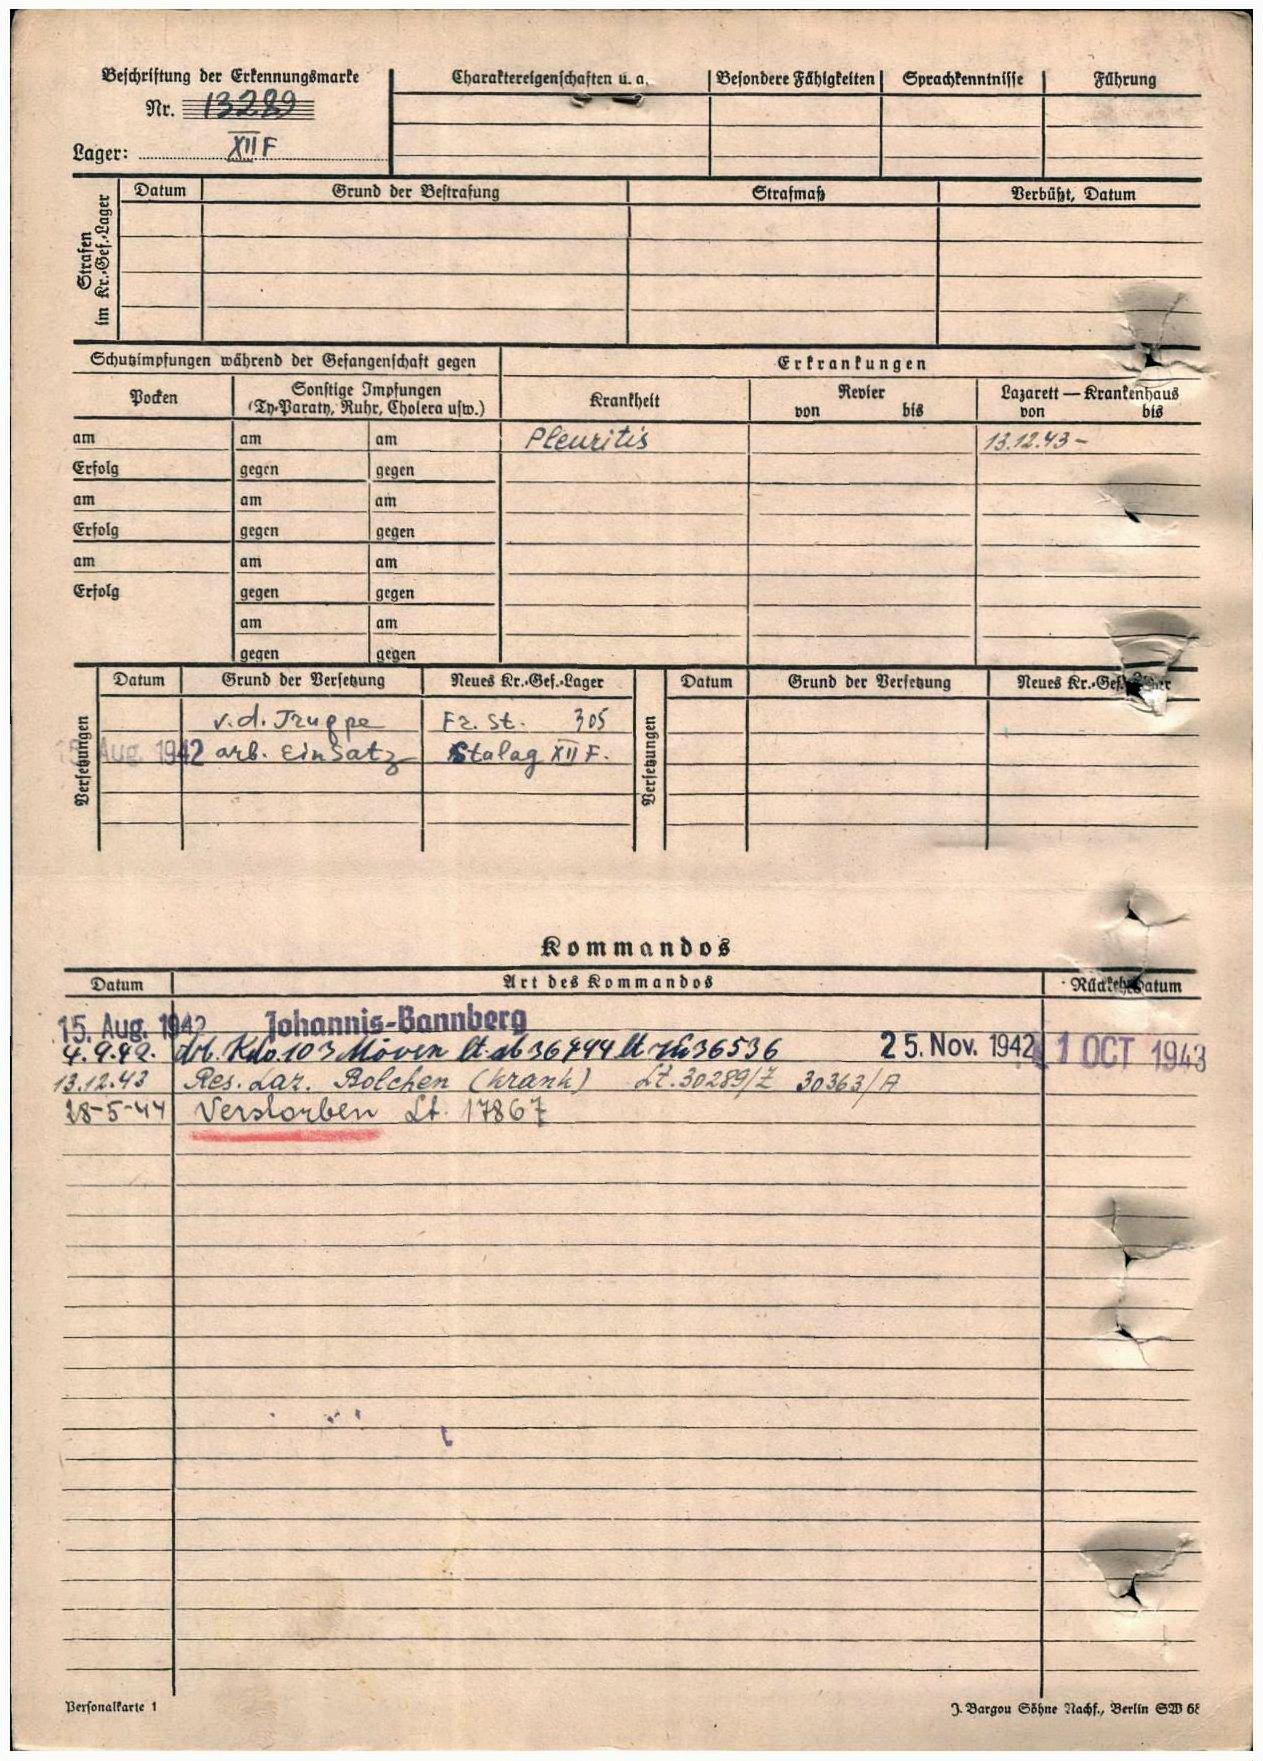 Beschriftung der Erkennungsmarke
Nr. 13289
Lager: XII F
Charaktereigenschaften u. a. Besondere Fähigkeiten Sprachkenntnisse Führung
Strafen im Kr.-Gef.-Lager
Datum Grund der Bestrafung Strafmaß Verbüßt, Datum
Schutzimpfungen während der Gefangenschaft gegen
Erkrankungen
Pocken Sonstige Impfungen (Ty-Paraty, Ruhr, Cholera usw.)
Krankheit Revier von bis Lazarett — Krankenhaus von bis
am am am Pleuritis 13.12.43 -
Erfolg gegen gegen
am am am
Erfolg gegen gegen
am am am
Erfolg gegen gegen
am am
gegen gegen
Versetzungen
Datum Grund der Versetzung Neues Kr.-Gef.-Lager
v. d. Truppe Fr. St. 305
Aug. 1942 arb. Einsatz Stalag XII F.
Versetzungen
Datum Grund der Versetzung Neues Kr.-Gef.-Lager
Kommandos
Datum Art des Kommandos Rückkehr Datum
15. Aug. 1942 Johannis-Bannberg
4.9.42. Kdo. 103 Möven lt. 36536 25. Nov. 1942 1 OCT 1943
13.12.43 Res. Laz. Bolchen (krank) Lt. 30289/Z 30363/A
28-5-44 Verstorben Lt. 17867
Personalkarte 1
J. Bargou Söhne Nachf., Berlin SW 68